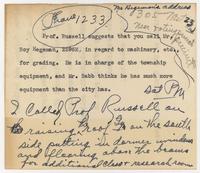 Phone 1233
Mr Hegeman's address
1305
Prof. Russell suggests that you call Mr.
Roy Hegeman, in regard to machinery, etc.,
for grading. He is in charge of the township
equipment, and Mr. Babb thinks he has much more
equipment than the city has.
Sat PM
I called Prof Russell on
raising roof on the south
side putting in dormer windows
and flooring above the beams
for additional class & research room